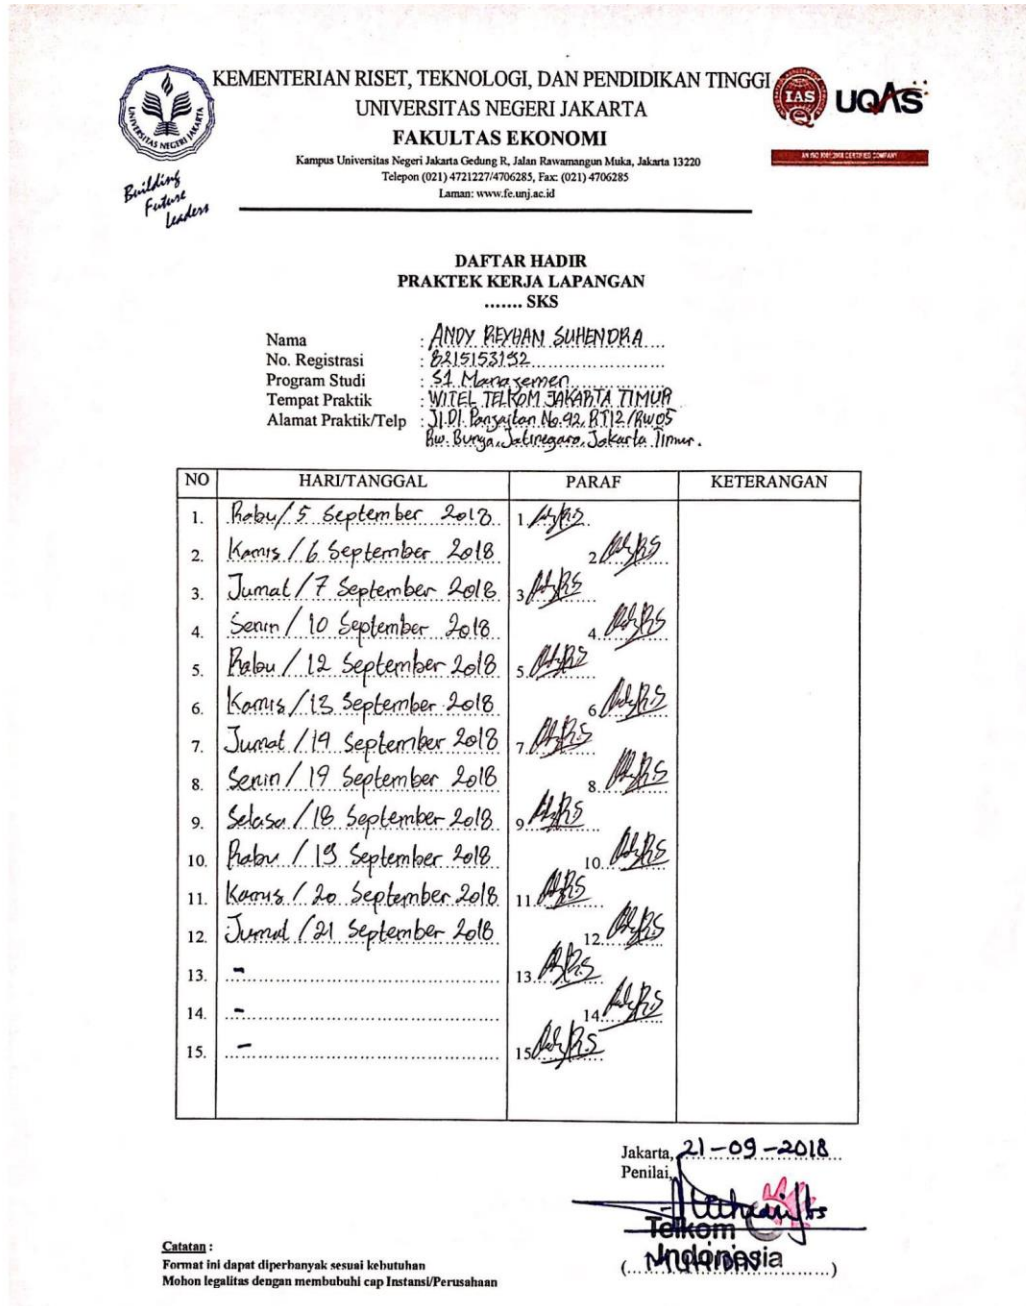 KEMENTERIAN RISET, TEKNOLOGI, DAN PENDIDIKAN TINGGI
UNIVERSITAS NEGERI JAKARTA
FAKULTAS EKONOMI
Kampus Universitas Negeri Jakarta Gedung R, Jalan Rawamangun Muka, Jakarta 13220
Telepon (021) 4721227/4706285, Fax: (021) 4706285
Laman: www.fe.unj.ac.id
UNIVERSITAS NEGERI JAKARTA
Building
Future
Leaders
IAS
UQAS
AN ISO 9001:2008 CERTIFIED COMPANY
DAFTAR HADIR
PRAKTEK KERJA LAPANGAN
....... SKS
Nama : ANDY REYHAN SUHENDRA
No. Registrasi : 8215153192
Program Studi : S1 Manajemen
Tempat Praktik : WITEL TELKOM JAKARTA TIMUR
Alamat Praktik/Telp : Jl. DI. Panjaitan No.42, RT12/RW05
Rw. Bunga, Jatinegara, Jakarta Timur.
NO HARI/TANGGAL PARAF KETERANGAN
1. Rabu / 5 September 2018 1.
2. Kamis / 6 September 2018 2
3. Jumat / 7 September 2018 3
4. Senin / 10 September 2018 4.
5. Rabu / 12 September 2018 5.
6. Kamis / 13 September 2018 6
7. Jumat / 14 September 2018 7.
8. Senin / 17 September 2018 8.
9. Selasa / 18 September 2018 9
10. Rabu / 19 September 2018 10.
11. Kamis / 20 September 2018 11
12. Jumat / 21 September 2018 12.
13. - 13.
14. - 14.
15. - 15
Jakarta, 21-09-2018
Penilai,
Telkom
Indonesia
(.................)
Catatan :
Format ini dapat diperbanyak sesuai kebutuhan
Mohon legalitas dengan membubuhi cap Instansi/Perusahaan